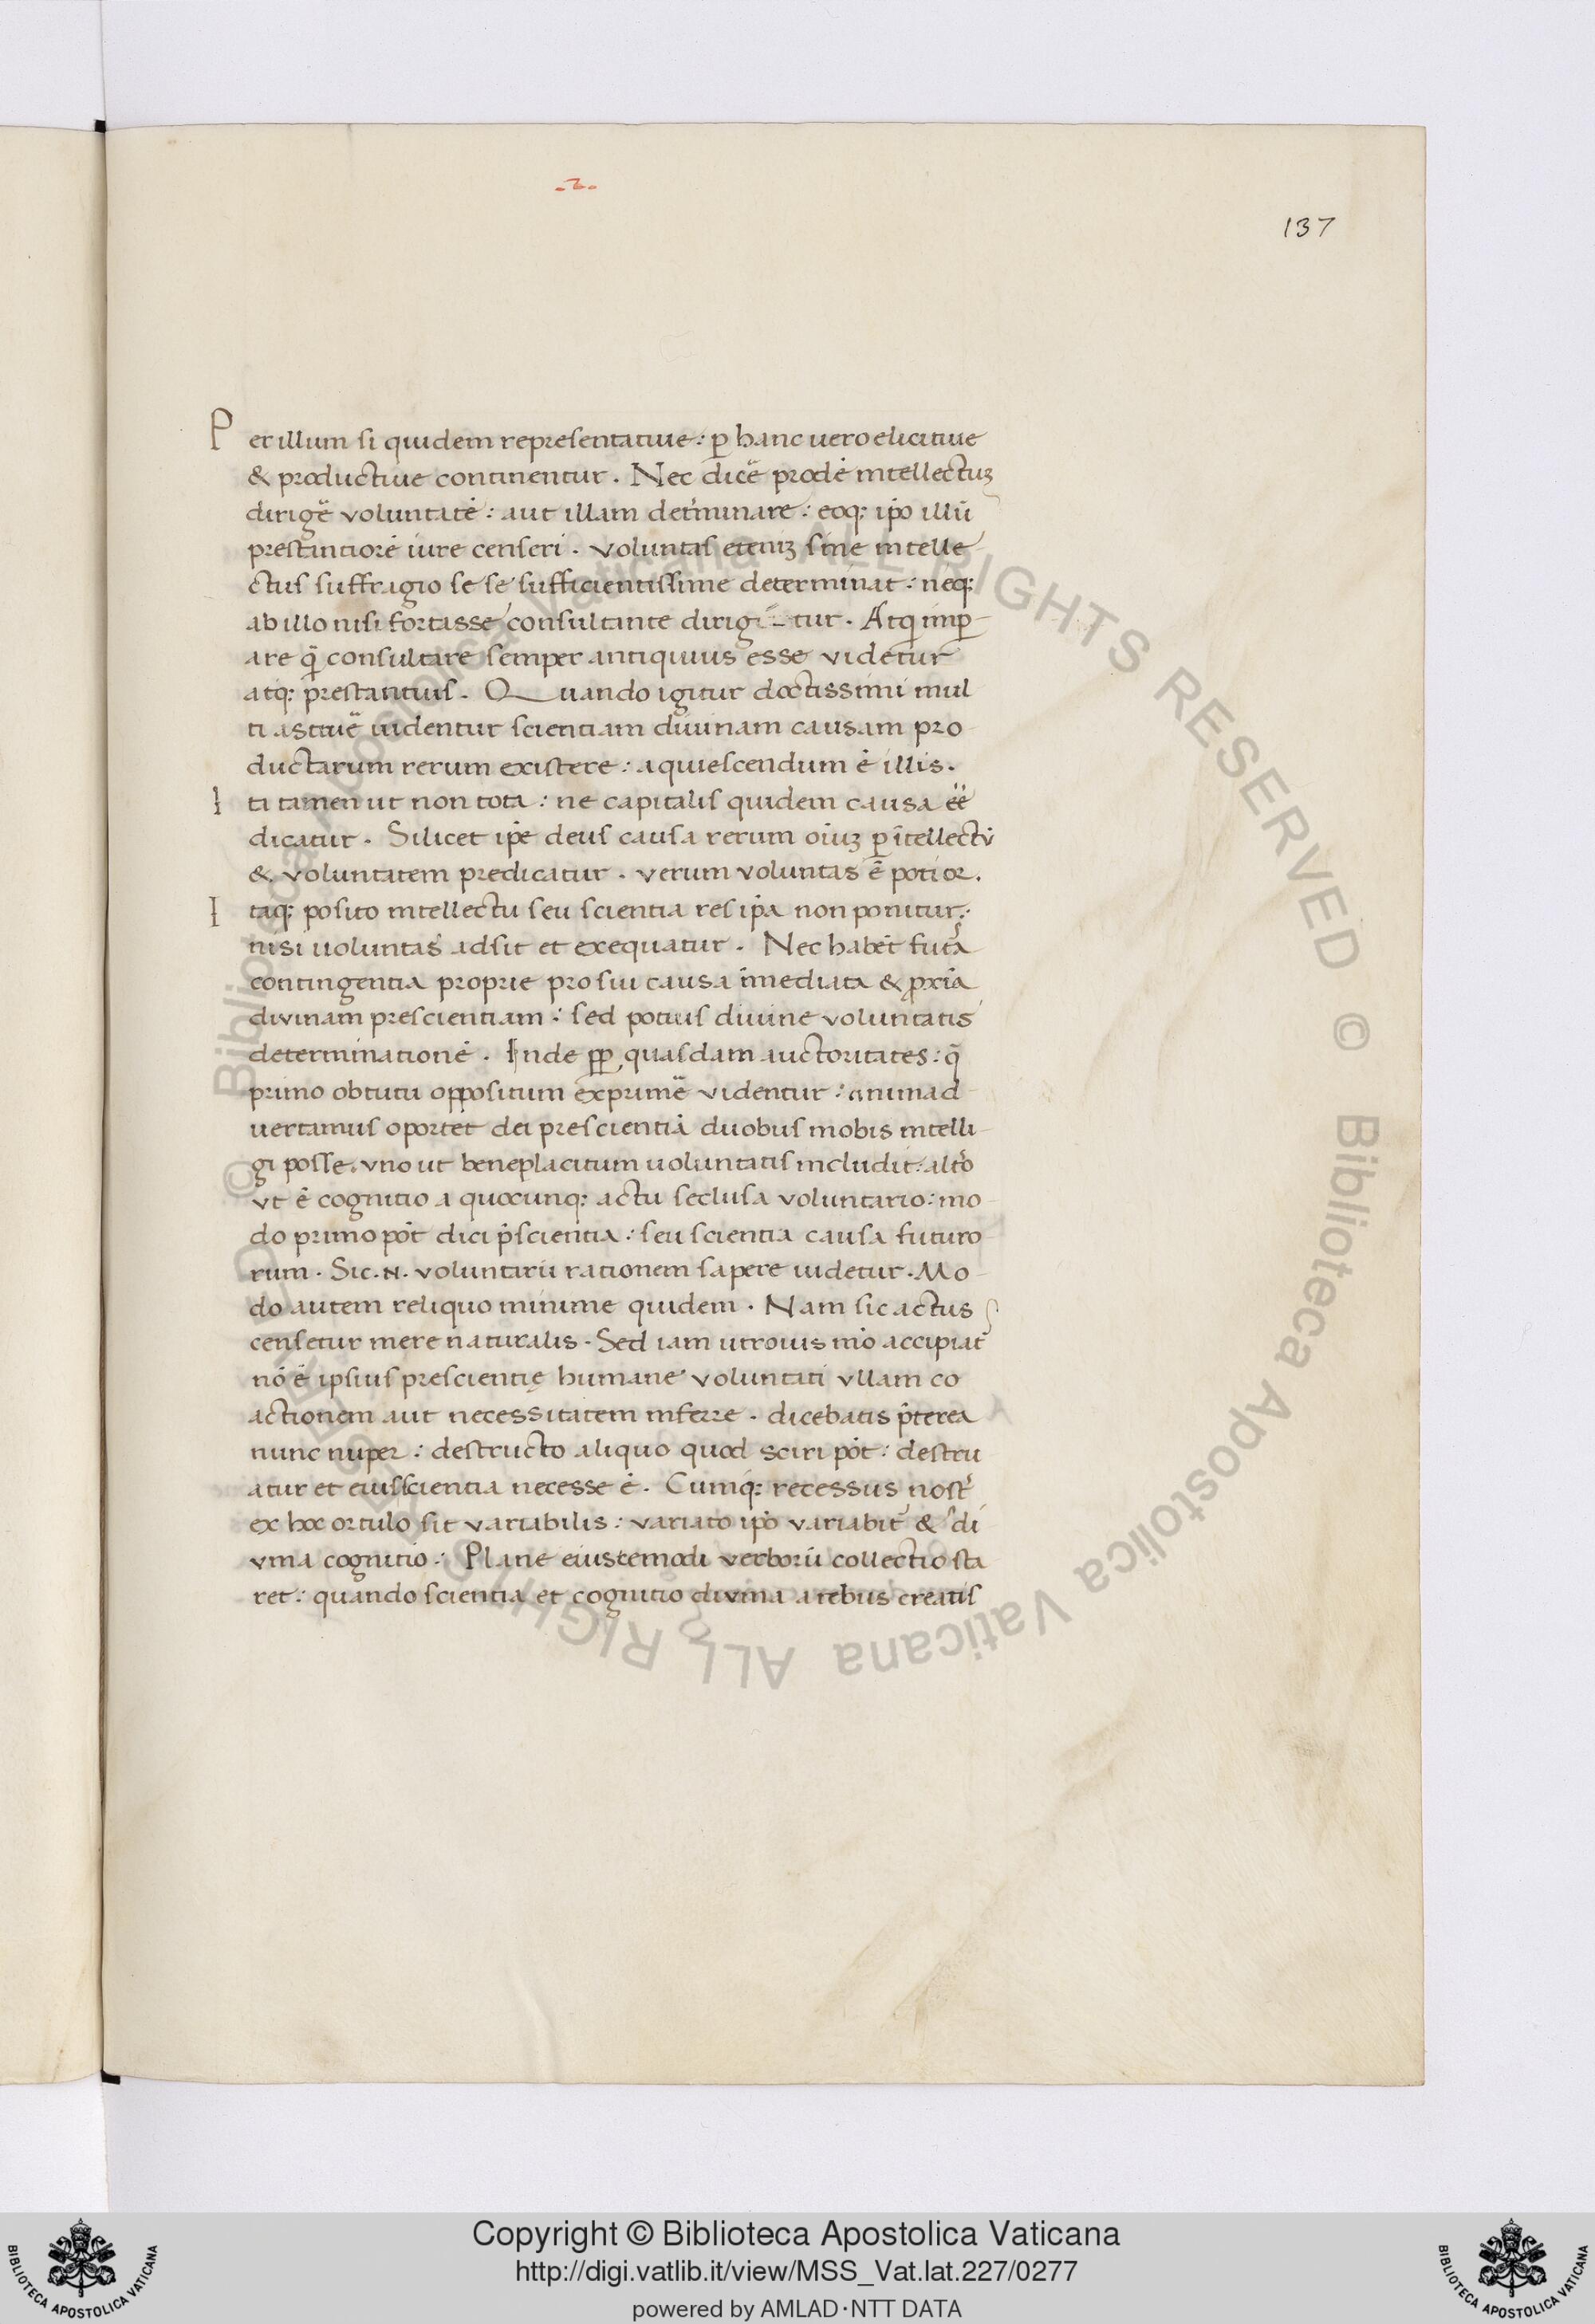 .2.
137
Per illum si quidem representatiue : ꝑ hanc uero elicitiue
& productiue continentur . Nec dicẽ prodẽ intellectuꝫ
dirigẽ voluntatẽ : aut illam det̉minare : eoqꝫ ip̃o illũ
prestantiorẽ iure censeri . voluntas eteniꝫ sine intelle
ctus suffragio se se sufficientissime determinat : neqꝫ
ab illo nisi fortasse consultante dirigitur . Atqui imꝑ
are q̃ consultare semper antiquius esse videtur
atqꝫ prestantius . Quando igitur doctissimi mul
ti astruẽ uidentur scientiam diuinam causam pro
ductarum rerum existere : aquiescendum ẽ illis .
Iti tamen ut non tota : ne capitalis quidem causa eẽ
dicatur . Silicet ip̃e deus causa rerum oĩuꝫ ꝑ ĩtellectũ
& voluntatem predicatur . verum voluntas ẽ potior .
Itaqꝫ posito intellectu seu scientia res ip̃a non ponitur :
nisi uoluntas adsit et exequatur . Nec habẽt futᷓa
contingentia proprie pro sui causa ĩmediata & ꝓxĩa
divinam prescientiam : sed potius diuine voluntatis
determinationẽ . Inde ꝓp quasdam auctoritates : q̃
primo obtutu oppositum exprimẽ videntur : animad
uertamus oportet dei prescientiã duobus mobis intelli
gi posse . vno ut beneplacitum uoluntatis includit : alt̉o
vt ẽ cognitio a quocunqꝫ actu seclusa voluntario : mo
do primo põt dici p̃scientia : seu scientia causa futuro
rum . Sic .N. voluntarii rationem sapere uidetur . Mo
do autem reliquo minime quidem . Nam sic actus
censetur mere naturalis . Sed iam utrouis mõ accipiat̃
nõ ẽ ipsius prescientię humane voluntati vllam co
actionem aut necessitatem inferre . dicebatis p̃terea
nunc nuper : destructo aliquo quod sciri põt : destru
atur et eius scientia necesse ẽ . Cumqꝫ recessus nost̉
ex hoc ortulo sit variabilis : variato ip̃o variabit̃ & di
vina cognitio : Plane eiuscemodi verborũ collectio sta
ret : quando scientia et cognitio divina a rebus creatis
© Biblioteca Apostolica Vaticana ALL RIGHTS RESERVED © Biblioteca Apostolica Vaticana ALL RIGHTS RESERVED
Copyright © Biblioteca Apostolica Vaticana
http://digi.vatlib.it/view/MSS_Vat.lat.227/0277
powered by AMLAD·NTT DATA
BIBLIOTECA APOSTOLICA VATICANA
BIBLIOTECA APOSTOLICA VATICANA